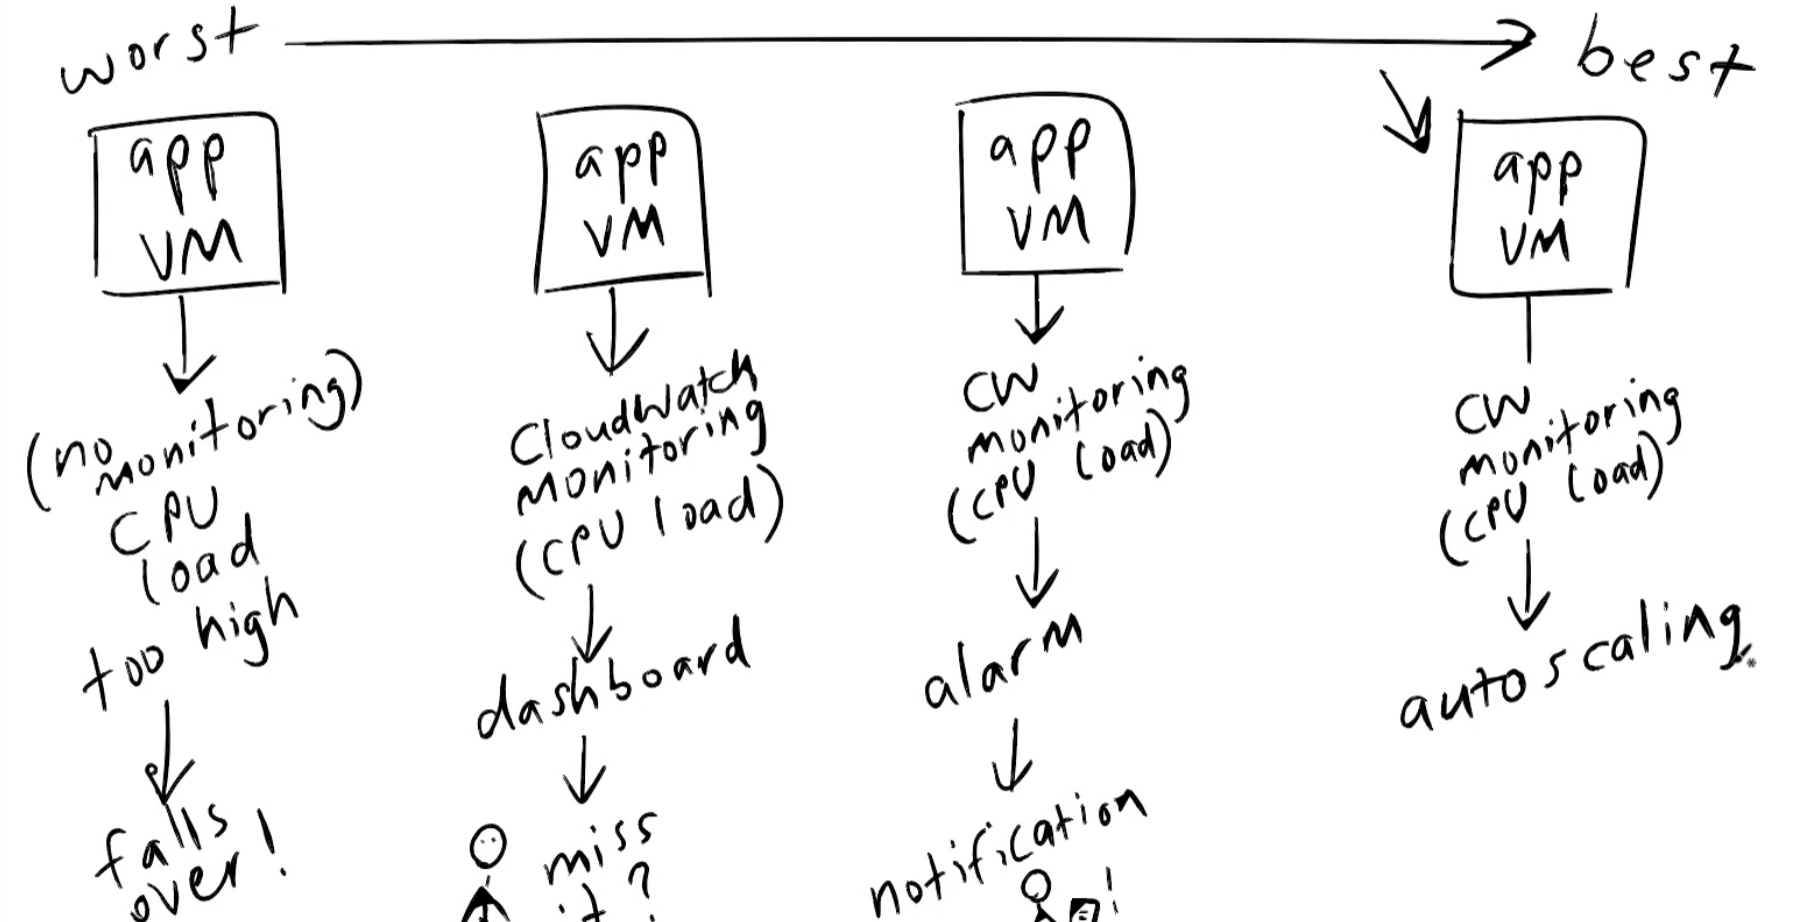 worst
best
app
VM
(no
monitoring)
CPU
load
too high
falls
over!
app
VM
CloudWatch
monitoring
(CPU load)
dashboard
miss
it?
app
VM
CW
monitoring
(CPU load)
alarm
notification
!
app
VM
CW
monitoring
(CPU load)
autoscaling